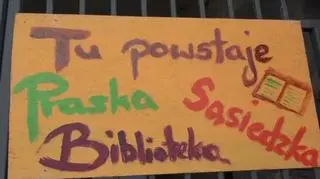 Tu powstaje
Praska Sąsiedzka
Biblioteka